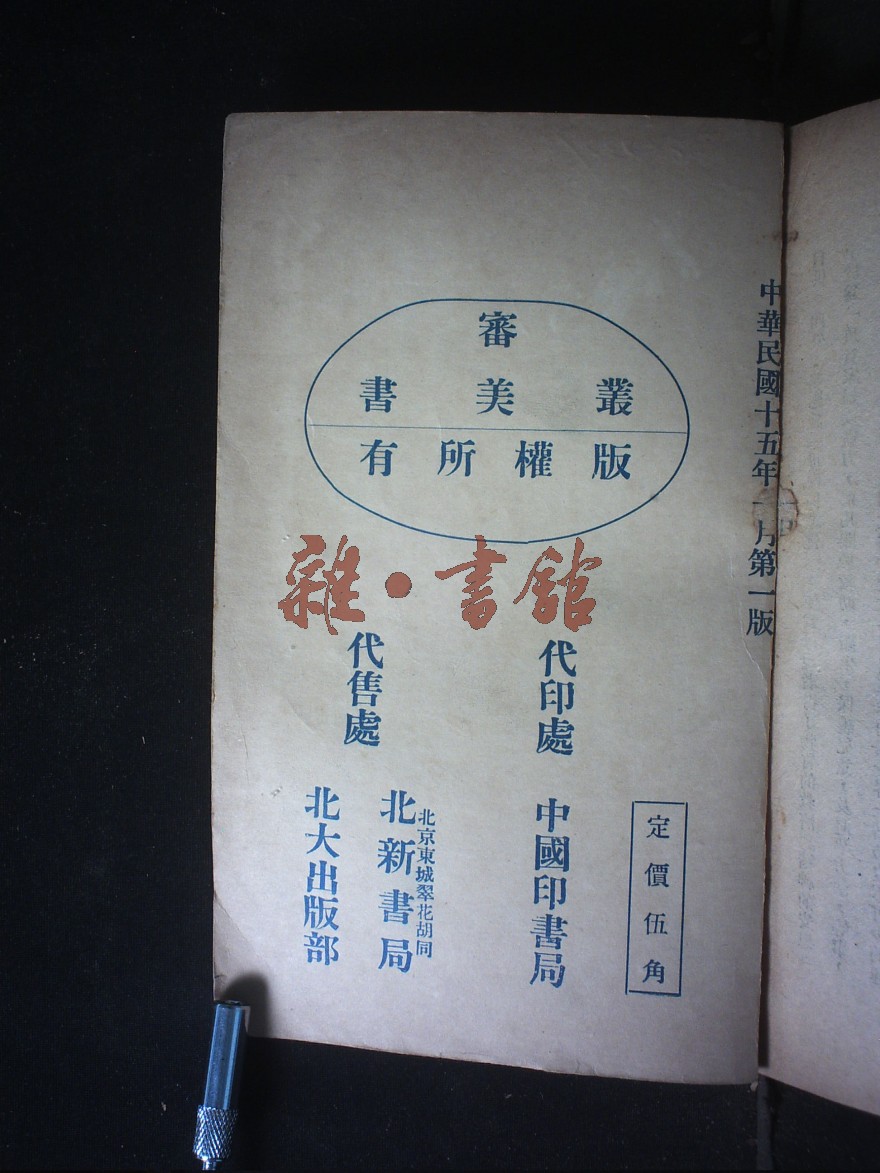 中華民國十五年一月第一版
審
叢美書
版權所有
雜·書館
定價伍角
代印處
中國印書局
代售處
北京東城翠花胡同
北新書局
北大出版部